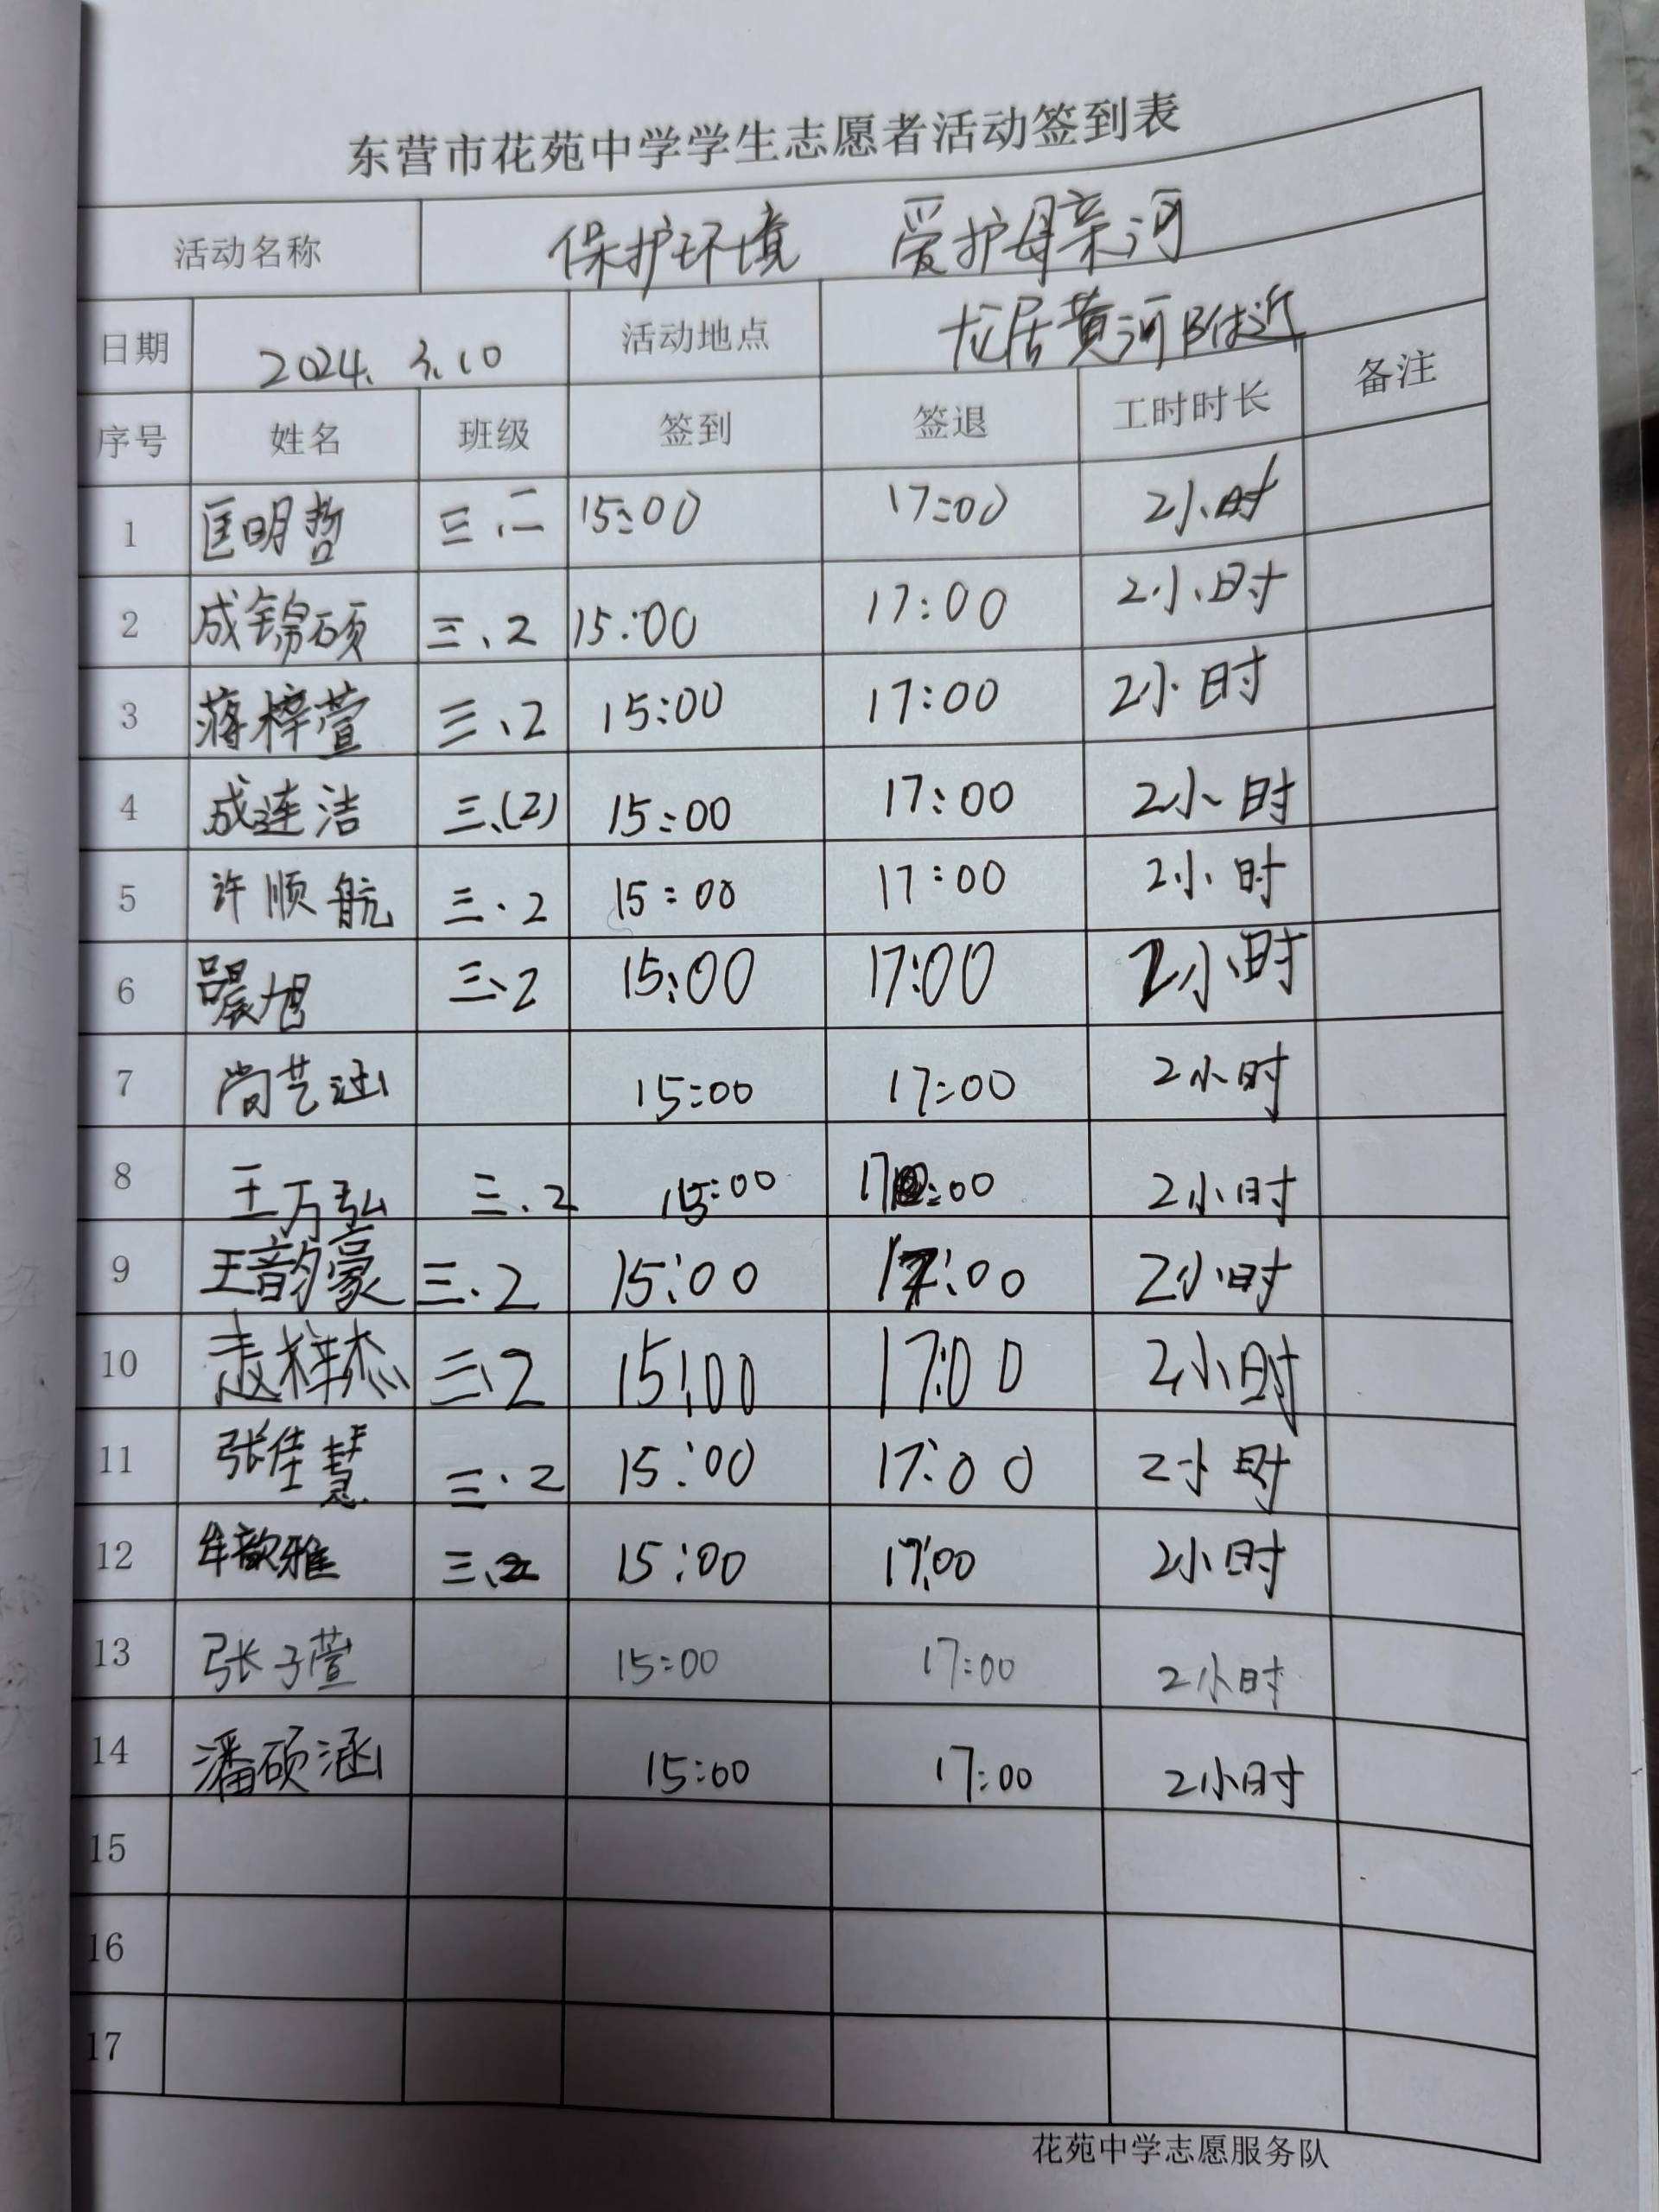 东营市花苑中学学生志愿者活动签到表
活动名称 保护环境 爱护母亲河
日期 2024.3.10 活动地点 龙居黄河附近
序号 姓名 班级 签到 签退 工时时长 备注
1 匡明哲 三.二 15:00 17:00 2小时
2 成锦硕 三、2 15:00 17:00 2小时
3 蒋梓萱 三、2 15:00 17:00 2小时
4 成连洁 三、(2) 15:00 17:00 2小时
5 许顺航 三.2 15:00 17:00 2小时
6 三、2 15:00 17:00 2小时
7 尚艺涵 15:00 17:00 2小时
8 王万弘 三.2 15:00 17:00 2小时
9 王韵豪 三.2 15:00 17:00 2小时
10 三、2 15:00 17:00 2小时
11 张佳慧 三.2 15:00 17:00 2小时
12 牟歆雅 三、2 15:00 17:00 2小时
13 张子萱 15:00 17:00 2小时
14 潘硕涵 15:00 17:00 2小时
15
16
17
花苑中学志愿服务队